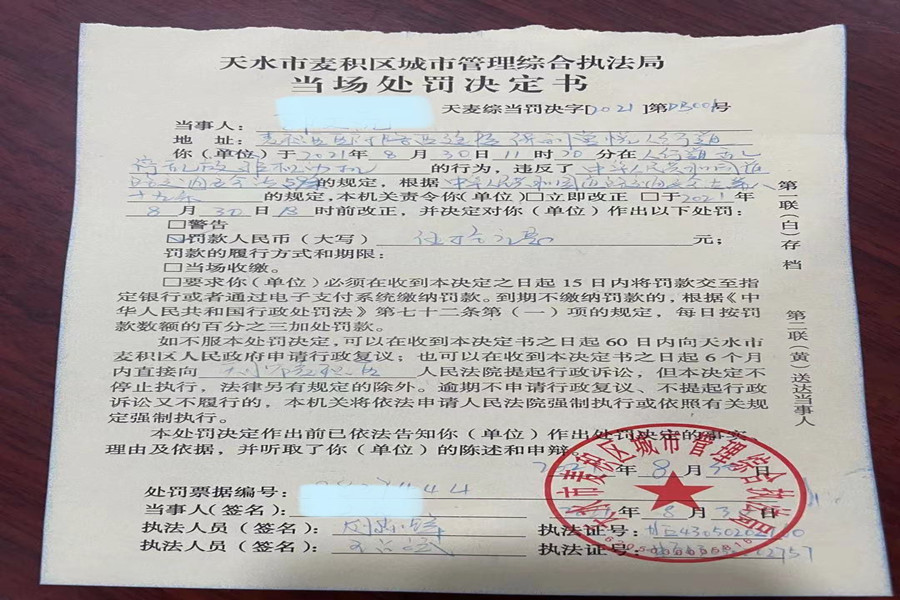 天水市麦积区城市管理综合执法局
当场处罚决定书
天麦综当罚决字[2021]第 号
当事人:
地 址:
你(单位)于2021年8月30日11时20分在人行道
非机动车 的行为,违反了 中华人民共和国道
路交通安全法 的规定,根据 中华人民共和国道路交通安全法第八
十九条 的规定,本机关责令你(单位)□立即改正 □于2021年
8月30日18时前改正,并决定对你(单位)作出以下处罚:
□警告
☑罚款人民币(大写) 伍拾元整 元;
罚款的履行方式和期限:
□当场收缴。
□要求你(单位)必须在收到本决定之日起15日内将罚款交至指
定银行或者通过电子支付系统缴纳罚款。到期不缴纳罚款的,根据《中
华人民共和国行政处罚法》第七十二条第(一)项的规定,每日按罚
款数额的百分之三加处罚款。
如不服本处罚决定,可以在收到本决定书之日起60日内向天水市
麦积区人民政府申请行政复议;也可以在收到本决定书之日起6个月
内直接向 人民法院提起行政诉讼,但本决定不
停止执行,法律另有规定的除外。逾期不申请行政复议、不提起行政
诉讼又不履行的,本机关将依法申请人民法院强制执行或依照有关规
定强制执行。
本处罚决定作出前已依法告知你(单位)作出处罚决定的事实、
理由及依据,并听取了你(单位)的陈述和申辩。
年8月30日
处罚票据编号:
当事人(签名): 年8月30日
执法人员(签名): 执法证号:
执法人员(签名): 执法证号:
第一联(白)存档
第二联(黄)送达当事人
天水市麦积区城市管理综合执法局